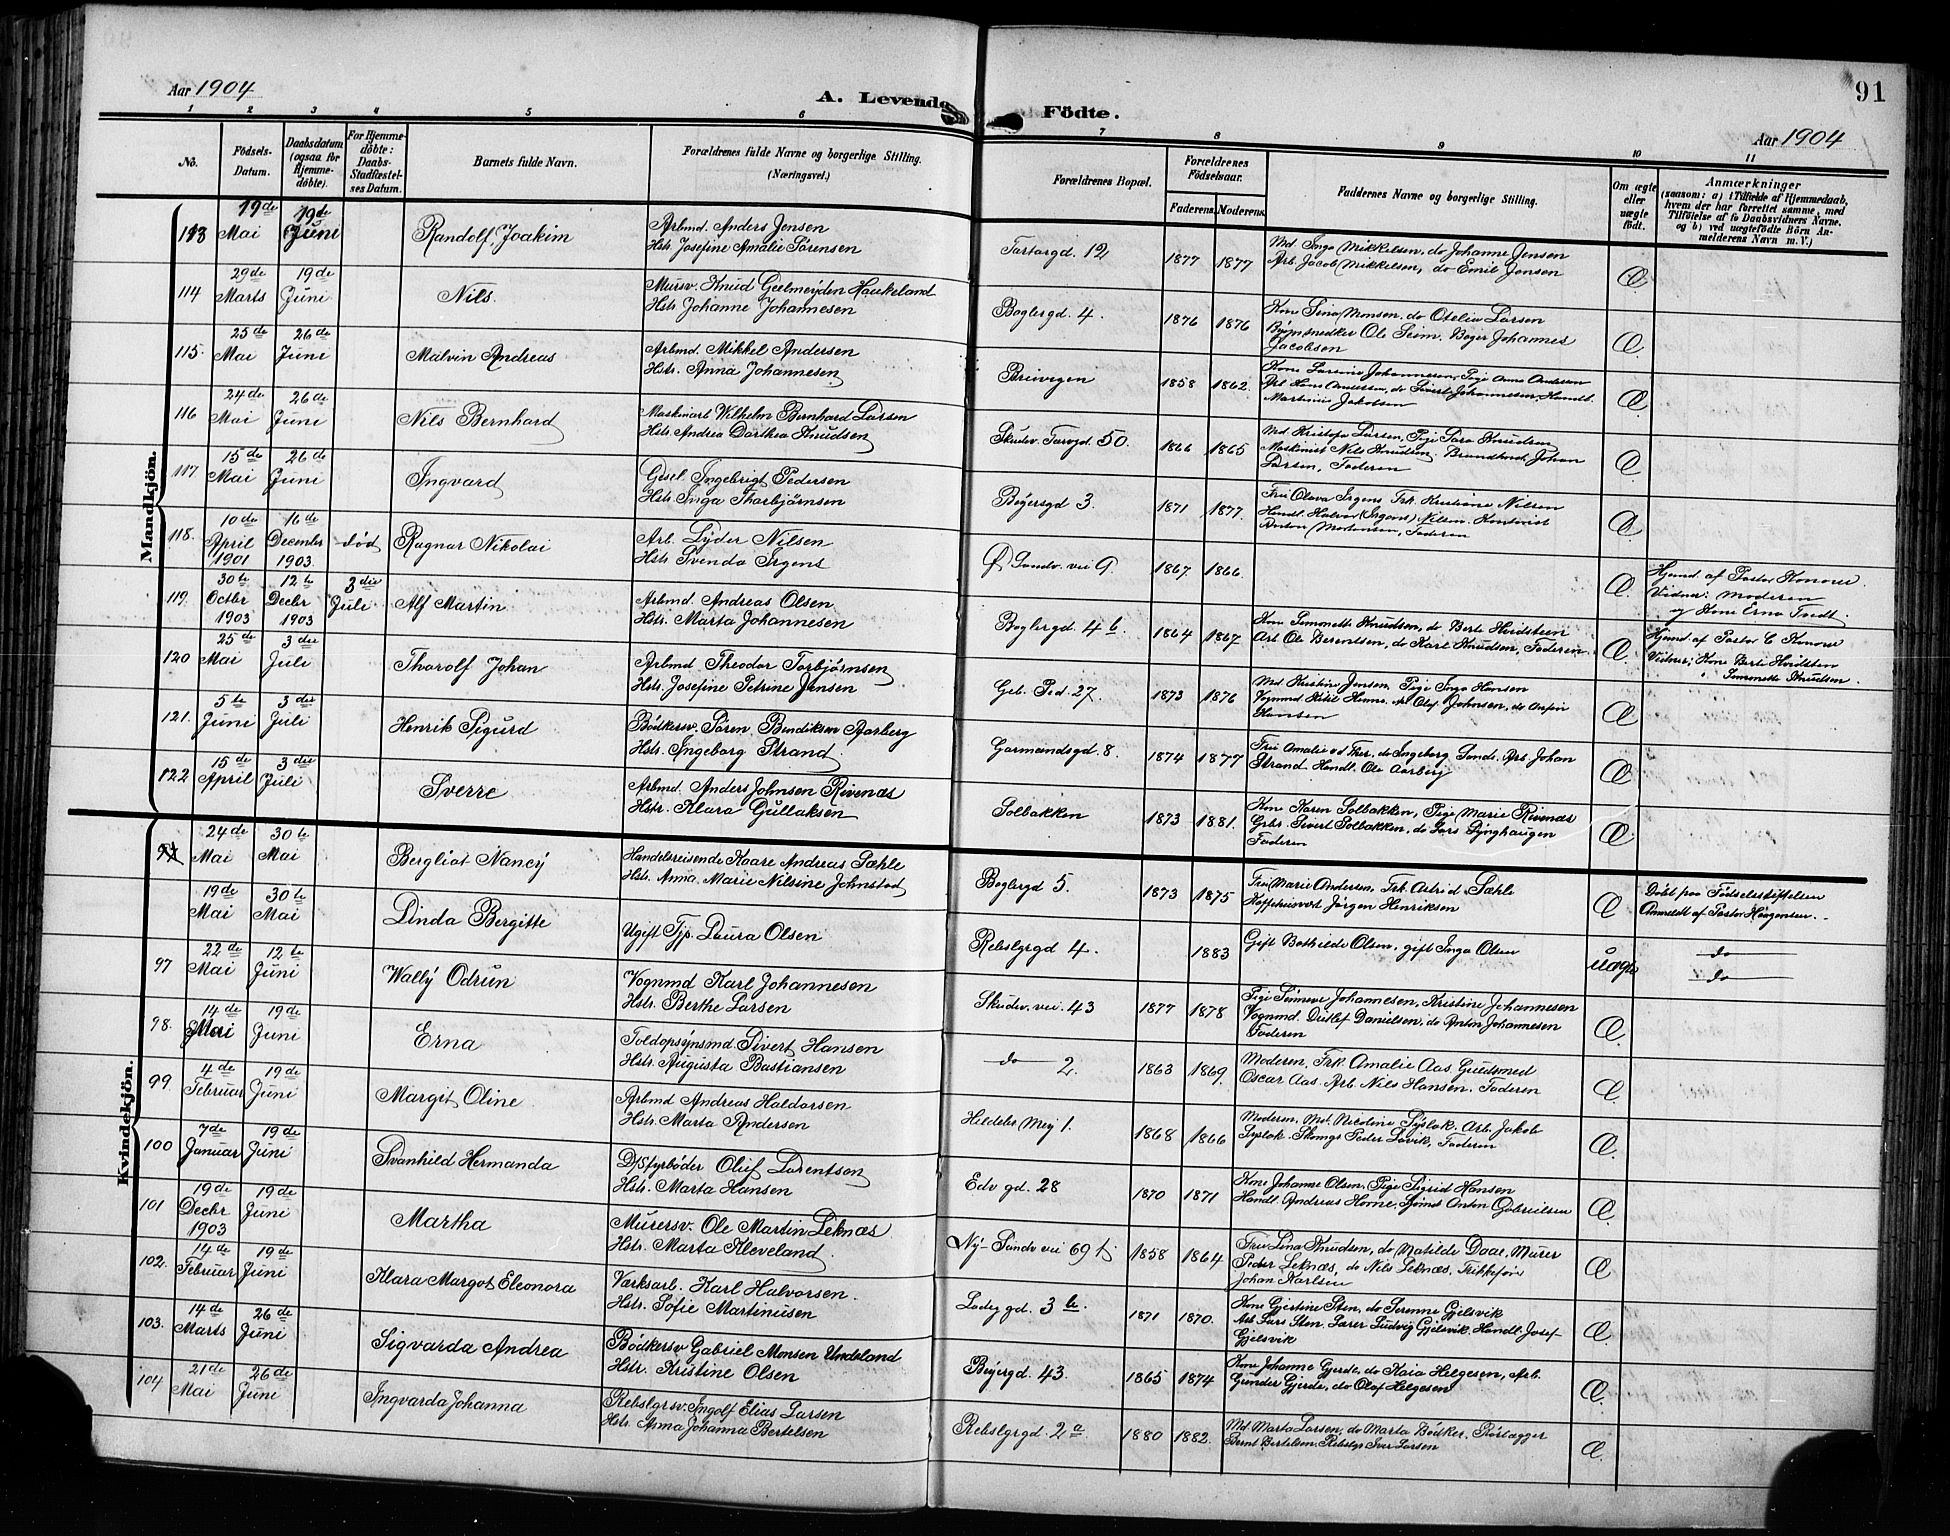 Aar 1904
A. Levende Födte.
91
Aar 1904
1 2 3 4 5 6 7 8 9 10 11
No. Födsels-Datum. Daabsdatum (ogsaa for Hjemme-döbte). For Hjemme-döbte: Daabs-Stadfæstel-ses Datum. Barnets fulde Navn. Forældrenes fulde Navne og borgerlige Stilling. (Næringsvei.)
Forældrenes Bopæl. Forældrenes Födselsaar. Faderens. Moderens. Faddernes Navne og borgerlig Stilling. Om ægte eller uægte födt. Anmærkninger (saasom: a) i Tilfælde af Hjemmedaab, hvem der har forrettet samme, med Tilföielse af to Daabsvidners Navne, og b) ved uægtefödte Börn An-melderens Navn m. V.)
Mandkjön.
113 19de Mai 19de Juni Randolf Joakim Arbmd. Anders Jensen
Hstr. Josefine Amalie Sørensen
Tartargd. 12 1877 1877 Md Inga Mikkelsen, do Johanne Jensen
Arb. Jacob Mikkelsen, do Emil Jensen Æ
114 29de Marts 19de Juni Nils. Mursv. Knud Geelmeÿden Haukeland
Hstr. Johanne Johannesen
Boglergd. 4. 1876 1876 Kone Sina Monsen, do Otelia Larsen
Ole Seim, Johannes
Jacobsen Æ
115. 25de Mai 26de Juni Malvin Andreas Arbmd. Mikkel Andersen
Hstr. Anna Johannesen
Breivigen 1858 1862. Kone Johannesen, Pige Anna Andersen
Arb Hans Andersen, do Sivert Johannesen, Handl.
Martinus Jakobsen Æ
116 24de Mai 26de Juni Nils Bernhard Maskinarb Wilhelm Bernhard Larsen
Hstr. Andrea Dorthea Knudsen
Skudev. Torvgd. 50. 1866 1865 Md Larsen, Pige Sara Knudsen
Maskinist Nils Knudsen. Johan
Larsen, Faderen Æ
117 15de Mai 26de Juni Ingvard Gjesel. Ingebrigt Pedersen
Hstr. Inga Tharbjørnsen
Beÿersgd 3 1871 1877. Fru Olava Irgens, Frk. Kristiane Nilsen
Handl. Halvor (Irgens) Nilsen. Kontorist
Anton Mortensen, Faderen Æ
118. 10de April 1901 16de December 1903 død Ragnar Nikolai Arb. Lyder Nilsen
Hstr. Svenda Irgens
Ø. Sandv. vei 9. 1867. 1866. Æ Hjemd. af Pastor Konow.
Vidner: Moderen
og Kone Erna Tvedt.
119. 30te Octbr 1903 12te Decbr 1903 3die Juli Alf Martin Arbmd. Andreas Olsen
Hstr. Marta Johannesen
Boglergd. 4 b. 1864 1867. Kone Simonette Knudsen, do Berte Hvidsteen
Arb Ole Berentsen, do Karl Knudsen, Faderen. Æ Hjemd. af Pastor C Konow
Vidner: Kone Berte Hvidsten
" Simonette Knudsen.
120 25de Mai 3die Juli Thorolf Johan Arbmd Theodor Torbjørnsen
Hstr. Josefine Petrine Jensen
27. 1873 1876 Md Kristine Jensen, Pige Inga Hansen
Olaf Johnsen, do
Hansen Æ
121. 5te Juni 3die Juli Henrik Sigurd Bødkersv. Søren Bendiksen Aarberg
Hstr. Ingeborg Strand
Garmandsgd 8. 1874 1877 Fru Amalie do Ingeborg Arb. Johan
Strand. Handl. Ole Aarberg Æ
122 15de April 3die Juli Sverre Arbmd. Anders Johnsen Rivenæs
Hstr. Klara Gullaksen
Solbakken 1873 1881. Kone Karen Solbakken, Pige Marie Rivenæs
Sivert Solbakken, do Lars
Faderen Æ
Kvindekjön.
24de Mai 30te Mai Bergliot Nancÿ Handelsreisende Kaare Andreas Sæhle
Hstr. Anna Marie Nilsine Johnstad
Boglergd 5. 1873 1875 Fru Marie Andersen, Frk Astrid Sæhle
Jørgen Henriksen Æ Døbt paa Fødselsstiftelsen
Anmeldt af Pastor Haagensen.
19de Mai 30te Mai Linda Bergitte Ugift Tjp. Laura Olsen
Rebslgrgd 4. 1883 Gift Bothilde Olsen, gift Inga Olsen uægte do
do
97 22de Mai 12te Juni Wallÿ Odrun Vognmd Karl Johannesen
Hstr. Berthe Larsen
Skudev. vei. 43 1877 1878 Pige Johannesen, Kristine Johannesen
Vognmd. Ditlef Danielsen, do Anton Johannesen
Faderen Æ
98. 14de Mai 19de Juni Erna Toldopsÿnsmd Sivert Hansen
Hstr. Augusta Bastiansen
do 2. 1863 1869. Moderen, Frk Amalie Aas, Guldsmed
Oscar Aas. Arb. Nils Hansen, Faderen Æ
99. 4de Februar 19de Juni Margit Oline. Arbmd Andreas Haldorsen
Hstr. Marta Andersen
1. 1868 1866 Moderen, Md. Nicoline Sÿslak. Arb. Jakob
Sÿslak. Peder Løvik, Faderen Æ
100 7de Januar 19de Juni Svanhild Hermanda D/Sfyrbøder Oluf Lorentsen
Hstr. Marta Hansen
Edv gd. 28 1870 1871 Kone Johanne Olsen, Pige Sigrid Hansen
Handl. Andreas Horne, Sjømd Anton Gabrielsen Æ
101 19de Decbr 1903 19de Juni Martha Murersv. Ole Martin Leknæs
Hstr. Marta Kleveland.
Nÿ-Sandv vei 69 b 1858 1864 Fru Lina Knudsen, do Matilde Daae, Murer
Peder Leknæs, do Nils Leknæs,
Johan Karlsen Æ
102. 14de Februar 19de Juni Klara Margot Eleonora Værksarb. Karl Halvorsen.
Hstr. Sofie Martinusen
Ladeg gd. 3 b. 1871 1870. Kone Gjertine Sten, do Serenne Gjelsvik
Arb Lars Sten, Lærer Ludvig Gjelsvik, Handl. Josef
Gjelsvik Æ
103. 14de Marts 26de Juni Sigvarda Andrea Bödkersv Gabriel Monsen Undeland
Hstr. Kristine Olsen
Beÿergd. 43. 1865 1874 Kone Johanne Gjerde, do Kaia Helgesen, Arb.
Gunder Gjerde, do Olaf Helgesen Æ
104 21de Mai 26de Juni Ingvarda Johanna Rebslgrsv. Ingolf Elias Larsen
Hstr. Anna Johanna Bertelsen
Rebslgrgd. 2a 1880 1882. Md. Marta Larsen, do Marta Bödker,
Bernt Bertelsen, Rebslgr Iver Larsen Æ